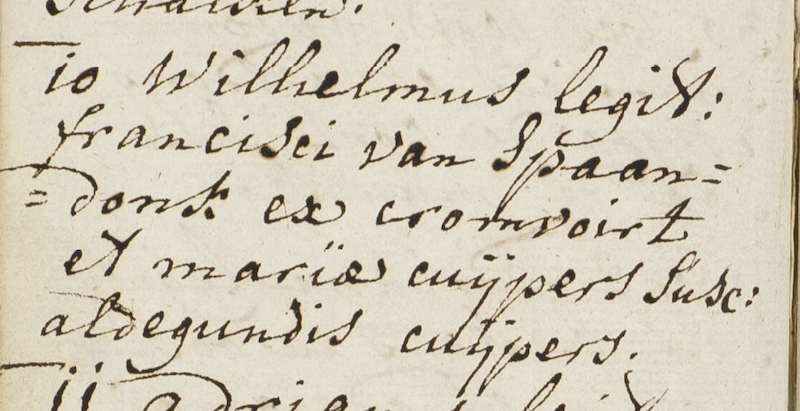 io Wilhelmus legit:
francisci van Spaan=
=donk ex cromvoirt
et mariæ cuÿpers Susc:
aldegundis cuÿpers.